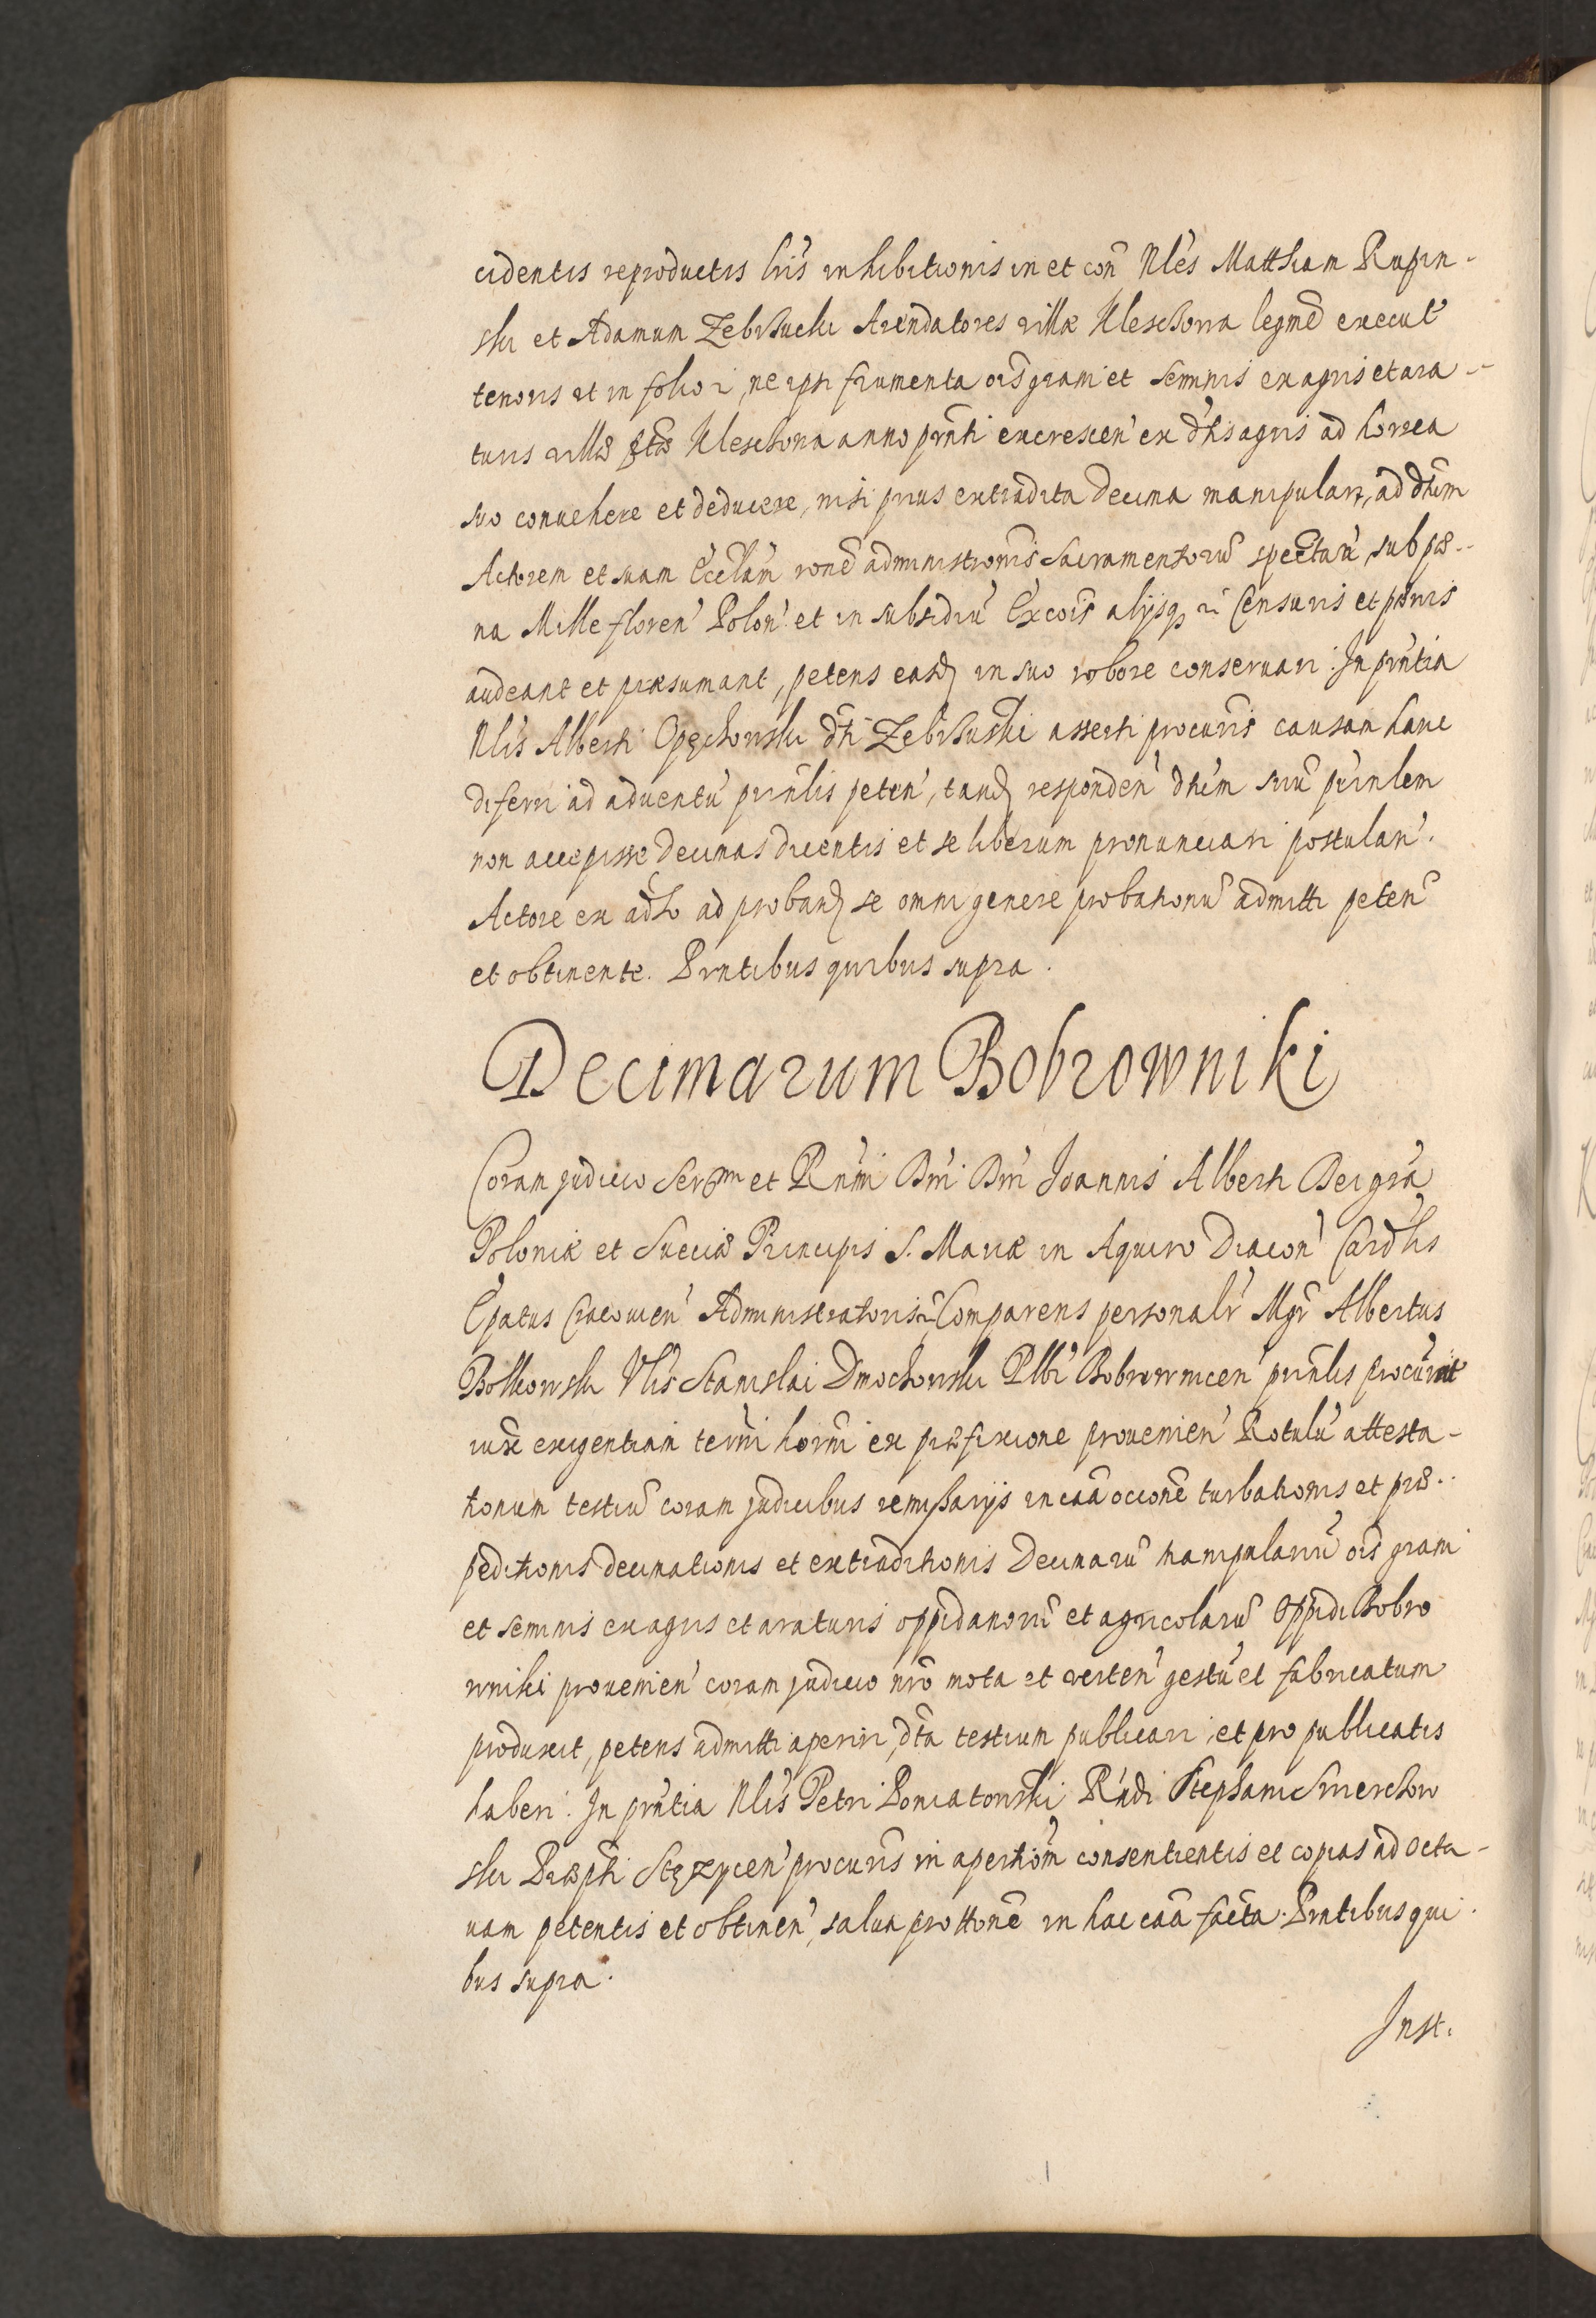 cidentis reproductis lris inhibitionis in et con Nles Matthiam Rupin-
ski et Adamum Zebrsucki Arendatores villæ Kleschowa legmē execut
tenoris ut in folio i, ne ipsi frumenta ois grani et seminis ex agris et ara-
turis villæ Kleschowa anno prnti excrescen' ex dtis agris ad horrea
suo convehere et deducere, nisi prius extradita decima manipulari, ad dnum
Actorem et suam Ecclam rone administronis Sacramentoru spectan, sub pœ-
na Mille floren' Polon' et in subsidiu Excois alijsq Censuris et pœnis
audeant et præsumant, petens easd in suo robore conservari. In prntia
Nlis Alberti Opęchowski dti Zebrsuski asserti procuris causam hanc
diferri ad adventu prinlis peten', tand responden' dnum suu prinlem
non accepisse decimas dicentis et se liberum pronunciari postulan'.
Actore ex adso ad proband se omni genere probationu admitti peten
et obtinente. Prntibus quibus supra.
Decimarum Bobrowniki
Coram judicio Sermi et Rnmi Dni Dni Joannis Alberti Dei gra
Poloniæ et Sueciæ Principis S. Mariæ in Aquiro Diacon' Cardlis
Epatus Cracovien' Administratoris Comparens personalr Mgr Albertus
Bolkowski Nlis Stanislai Dmochowski Plbi Bobrownicen' prinlis procurat
iux exigentiam termi horni ex præfixione provenien' Rotulu attesta-
tionum testiu coram judicibus remissarijs in caa occione turbationis et præ-
peditionis decimationis et extraditionis Decimaru manipulariu ois grani
et seminis ex agris et araturis oppidanoru et agricolaru Oppidi Bobro
wniki provenien' coram judicio nro mota et verten' gestu et fabricatum
produxit, petens admitti aperiri, dta testium publicari et pro publicatis
haberi. In prntia Nlis Petri Poniatowski Rndi Stephani Smerchow
ski Præpti Stęzycen' procuris in apertiom consentientis et copias ad octa-
vam petentis et obtinen', salva prottone in hac caa facta. Prntibus qui
bus supra.
Inst.